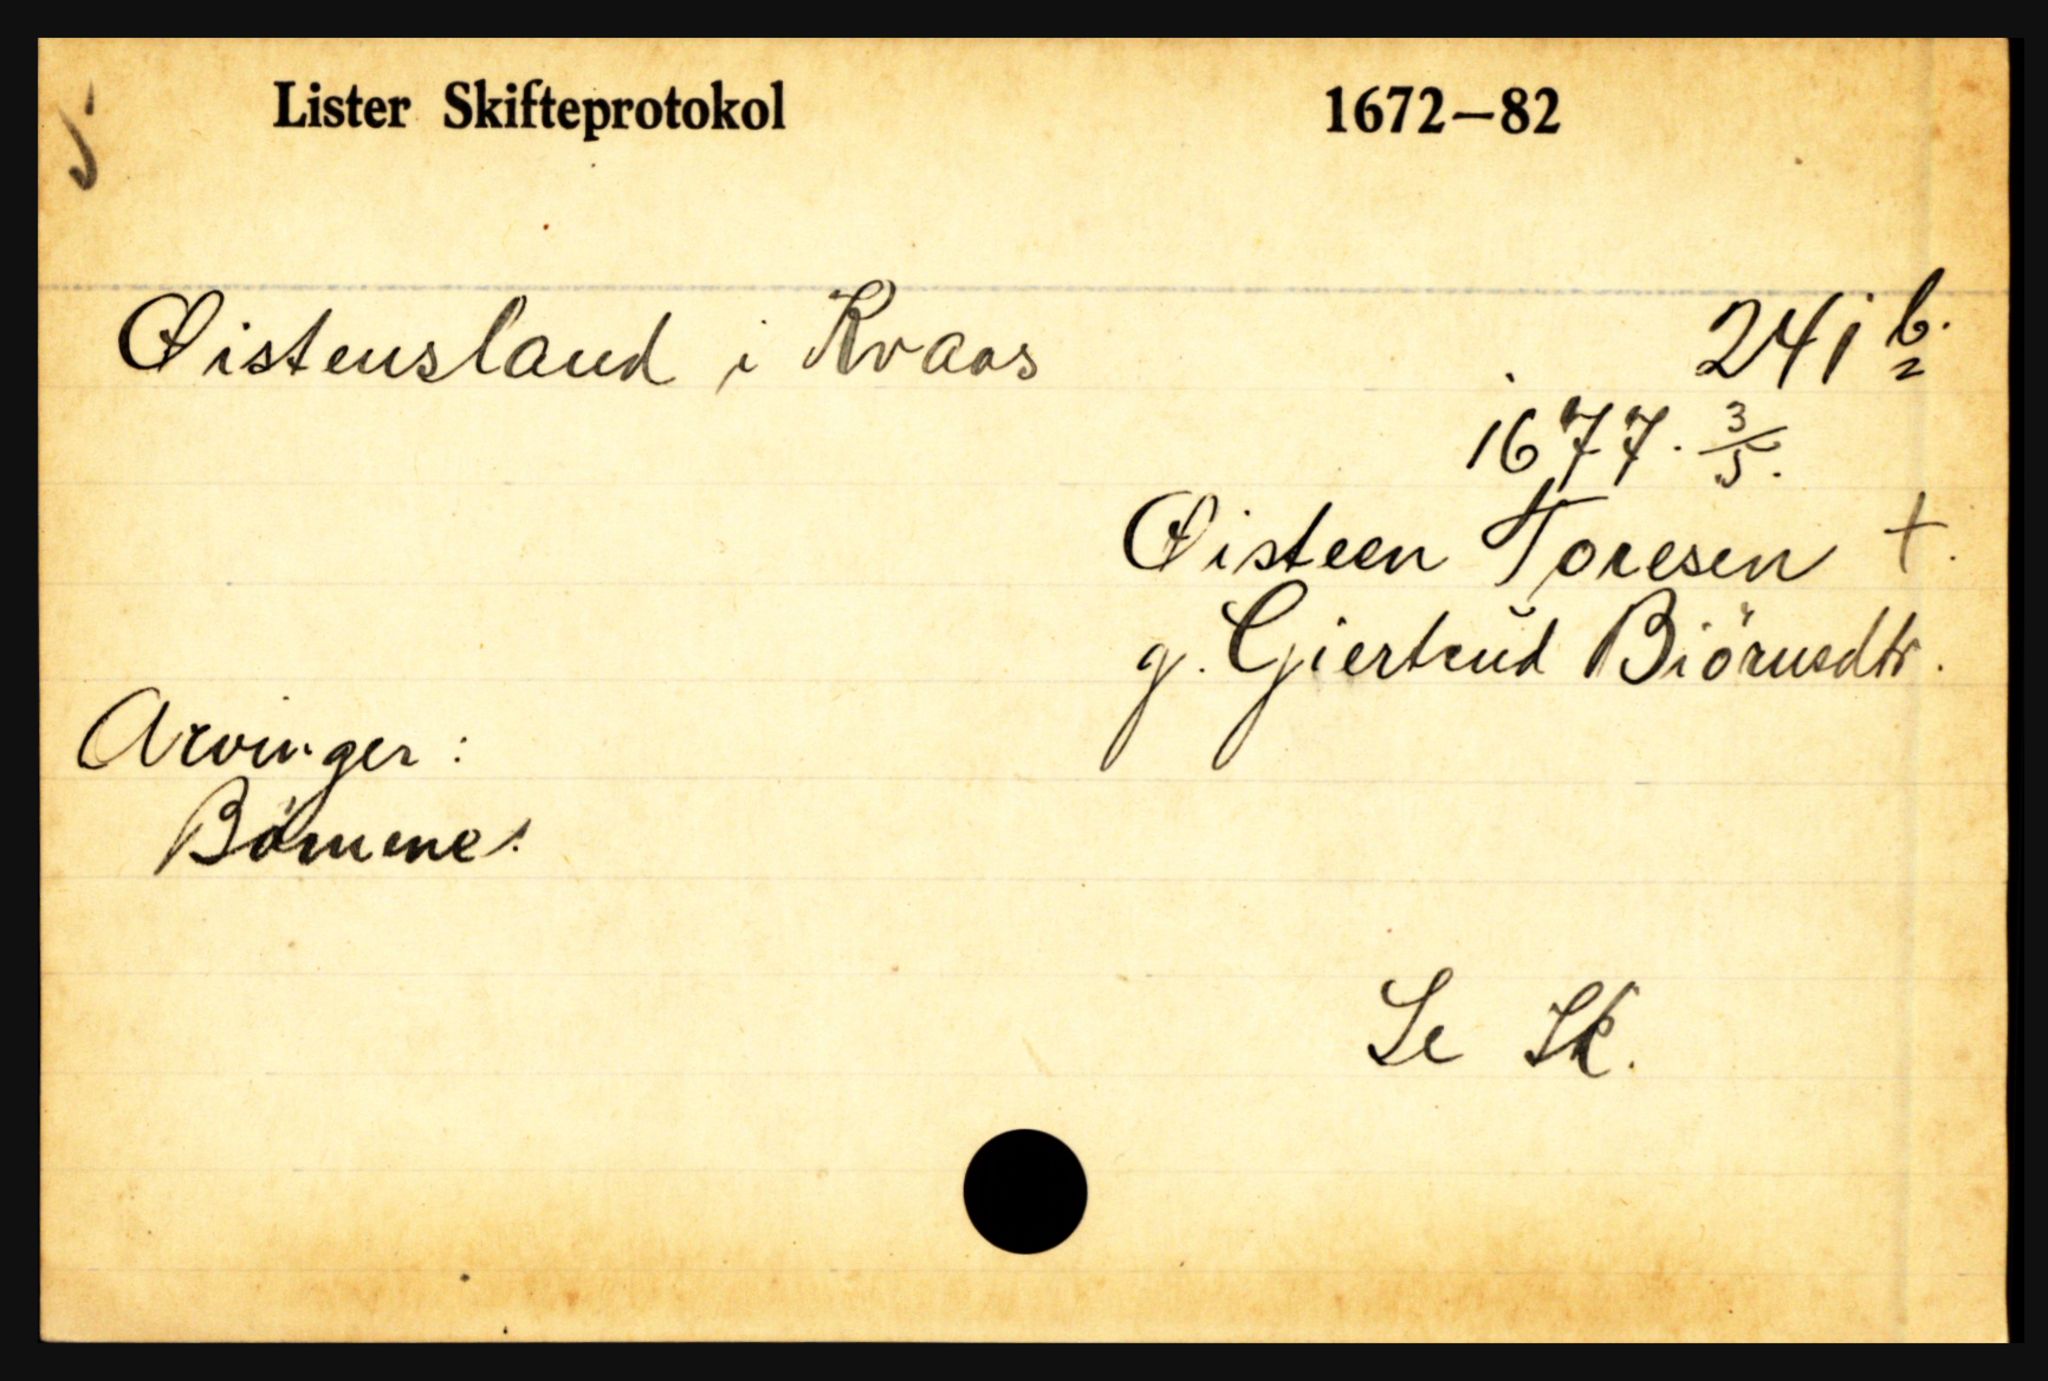 Lister Skifteprotokol 1672–82
Øistensland i Kvaas 241 b/2
1677. 3/5.
Øisteen Toresen +.
g. Gjertrud Biörnsdtr.
Arvinger:
Börnene.
Se Sk.